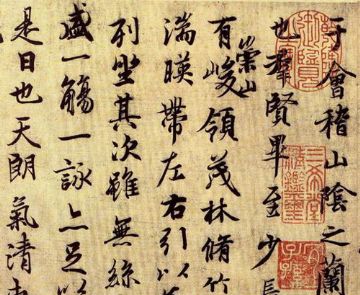 于會稽山陰之蘭
也羣賢畢至少長
有崇山峻領茂林脩竹
湍暎帶左右引以
列坐其次雖無絲
盛一觴一詠亦足以
是日也天朗氣清